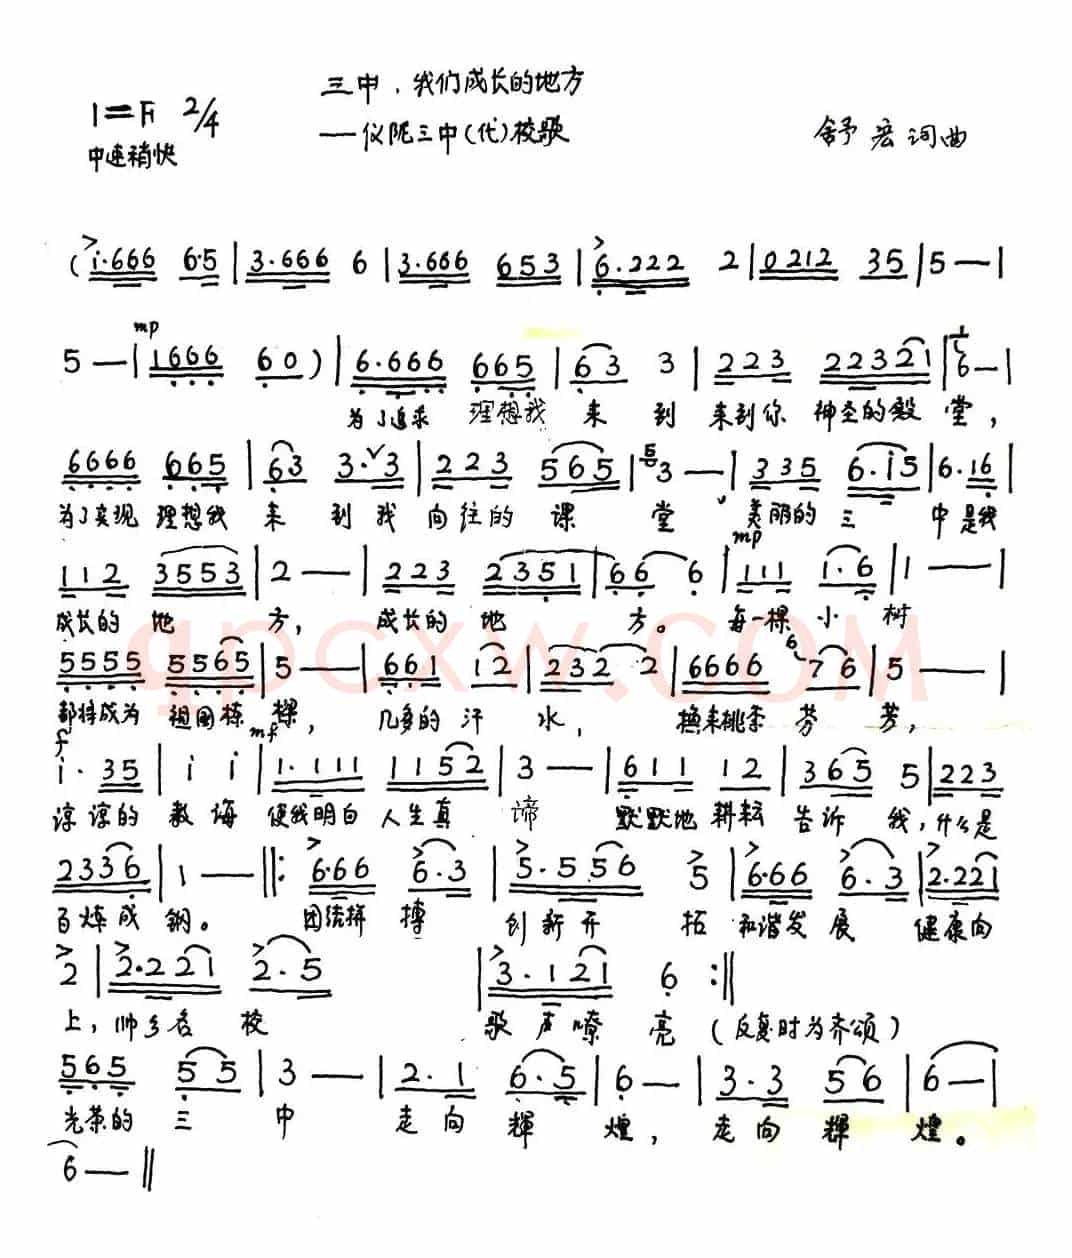 三中，我们成长的地方
1=F 2/4
——仪陇三中(代)校歌
舒宏词曲
中速稍快
(i·666 6·5 | 3·666 6 | 3·666 653 | 6·222 2 | 0212 35 | 5 — |
mp
5 — | 1666 60 ) | 6·666 665 | 63 3 | 223 22321 | 6 — |
为了追求 理想我 来 到 来到你 神圣的殿 堂，
6666 665 | 63 3·3 | 223 565 | 3 — | 335 6·i5 | 6·16 |
为了实现 理想我 来 到我 向往的 课 堂 美丽的 三 中是我
mp
112 3553 | 2 — | 223 2351 | 66 6 | 111 1·6 | 1 — |
成长的 地 方， 成长的 地 方。 每一棵 小 树
5555 5565 | 5 — | 661 12 | 232 2 | 6666 76 | 5 — |
都将成为 祖国栋 樑， 几多的 汗 水， 换来桃李 芬 芳，
f mf
i· 35 | i i | 1·111 1152 | 3 — | 611 12 | 365 5 | 223
谆谆的 教诲 使我明白 人生真 谛 默默地 耕耘 告诉 我，什么是
2336 | 1 — ||: 6·66 6·3 | 5·556 5 | 6·66 6·3 | 2·221
百炼成 钢。 团结拼 搏 创新开 拓 和谐发展 健康向
2 | 2·221 2·5 | 3·121 6 :||
上，帅乡名 校 歌声嘹 亮（反复时为齐颂）
565 55 | 3 — | 2·1 6·5 | 6 — | 3·3 56 | 6 — |
光荣的 三 中 走向 辉 煌， 走向 辉 煌。
6 — ||
qpcxw.COM